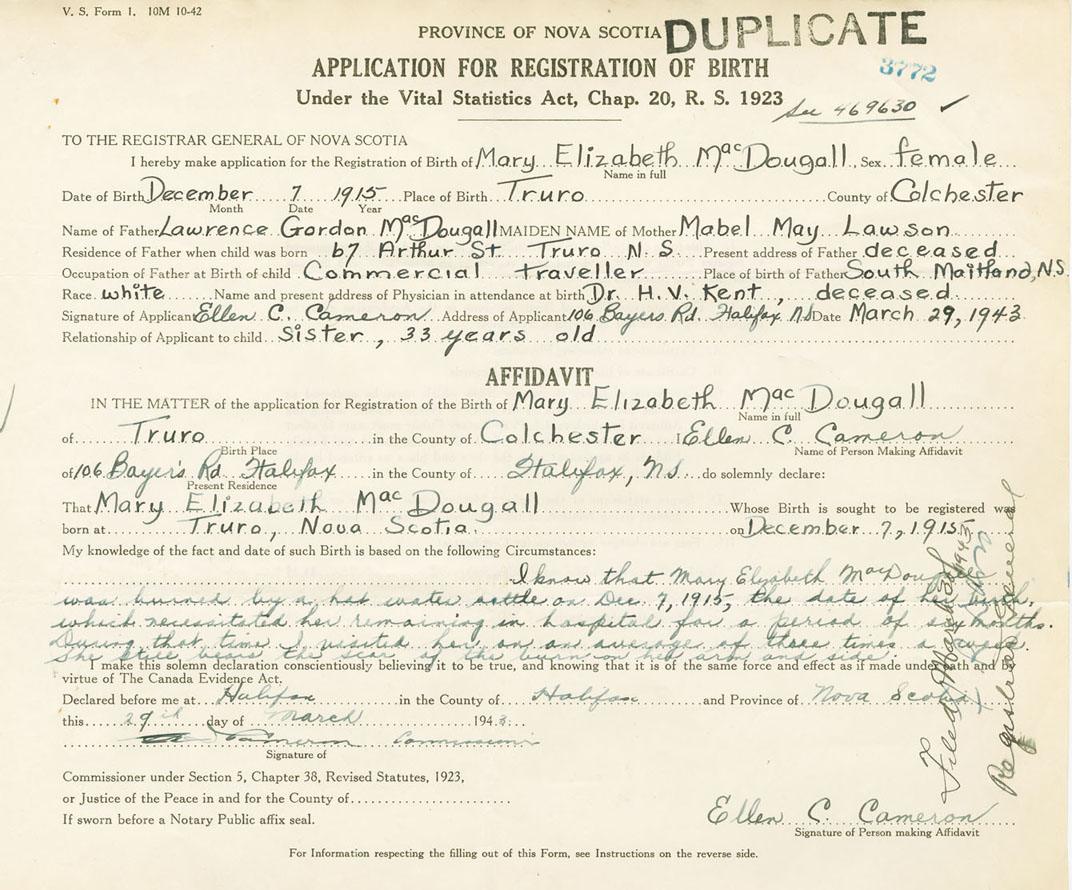 V. S. Form 1. 10M 10-42
PROVINCE OF NOVA SCOTIA DUPLICATE
APPLICATION FOR REGISTRATION OF BIRTH 3772
Under the Vital Statistics Act, Chap. 20, R. S. 1923 See 469630 ✓
TO THE REGISTRAR GENERAL OF NOVA SCOTIA
I hereby make application for the Registration of Birth of Mary Elizabeth MacDougall, Sex female
Name in full
Date of Birth December 7 1915 Place of Birth Truro County of Colchester
Month Date Year
Name of Father Lawrence Gordon MacDougall MAIDEN NAME of Mother Mabel May Lawson
Residence of Father when child was born 67 Arthur St. Truro N. S. Present address of Father deceased
Occupation of Father at Birth of child Commercial traveller Place of birth of Father South Maitland, N.S.
Race white Name and present address of Physician in attendance at birth Dr. H. V. Kent, deceased
Signature of Applicant Ellen C. Cameron Address of Applicant 106 Bayers Rd. Halifax NS Date March 29, 1943
Relationship of Applicant to child Sister, 33 years old
AFFIDAVIT
IN THE MATTER of the application for Registration of the Birth of Mary Elizabeth MacDougall
Name in full
of Truro in the County of Colchester I Ellen C. Cameron
Birth Place Name of Person Making Affidavit
of 106 Bayer's Rd Halifax in the County of Halifax, N.S. do solemnly declare:
Present Residence
That Mary Elizabeth MacDougall Whose Birth is sought to be registered was
born at Truro, Nova Scotia on December 7, 1915
My knowledge of the fact and date of such Birth is based on the following Circumstances:
I know that Mary Elizabeth MacDougall
was burned by a hot water bottle on Dec. 7, 1915, the date of her birth,
which necessitated her remaining in hospital for a period of six months.
During that time I visited her on an average of three times a week.
She still bears the scar of the burn on her arm and side.
I make this solemn declaration conscientiously believing it to be true, and knowing that it is of the same force and effect as if made under oath and
virtue of The Canada Evidence Act.
Declared before me at Halifax in the County of Halifax and Province of Nova Scotia
this 29th day of March 1943
Cameron Commissioner
Signature of
Commissioner under Section 5, Chapter 38, Revised Statutes, 1923,
or Justice of the Peace in and for the County of
If sworn before a Notary Public affix seal.
Ellen C. Cameron
Signature of Person making Affidavit
For Information respecting the filling out of this Form, see Instructions on the reverse side.
Filed March 1943
Registrar General